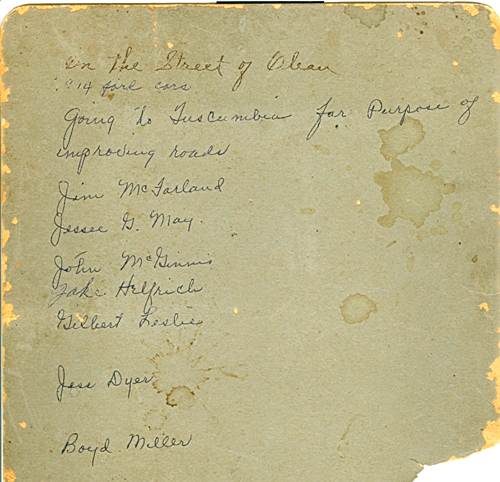 On the Street of Olean
1914 ford cars
Going to Tuscumbia for Purpose of
improving roads
Jim McFarland
Jessee G. May.
John McGinnis
Jake Helfrich
Gilbert Leslie
Jess Dyer
Boyd Miller